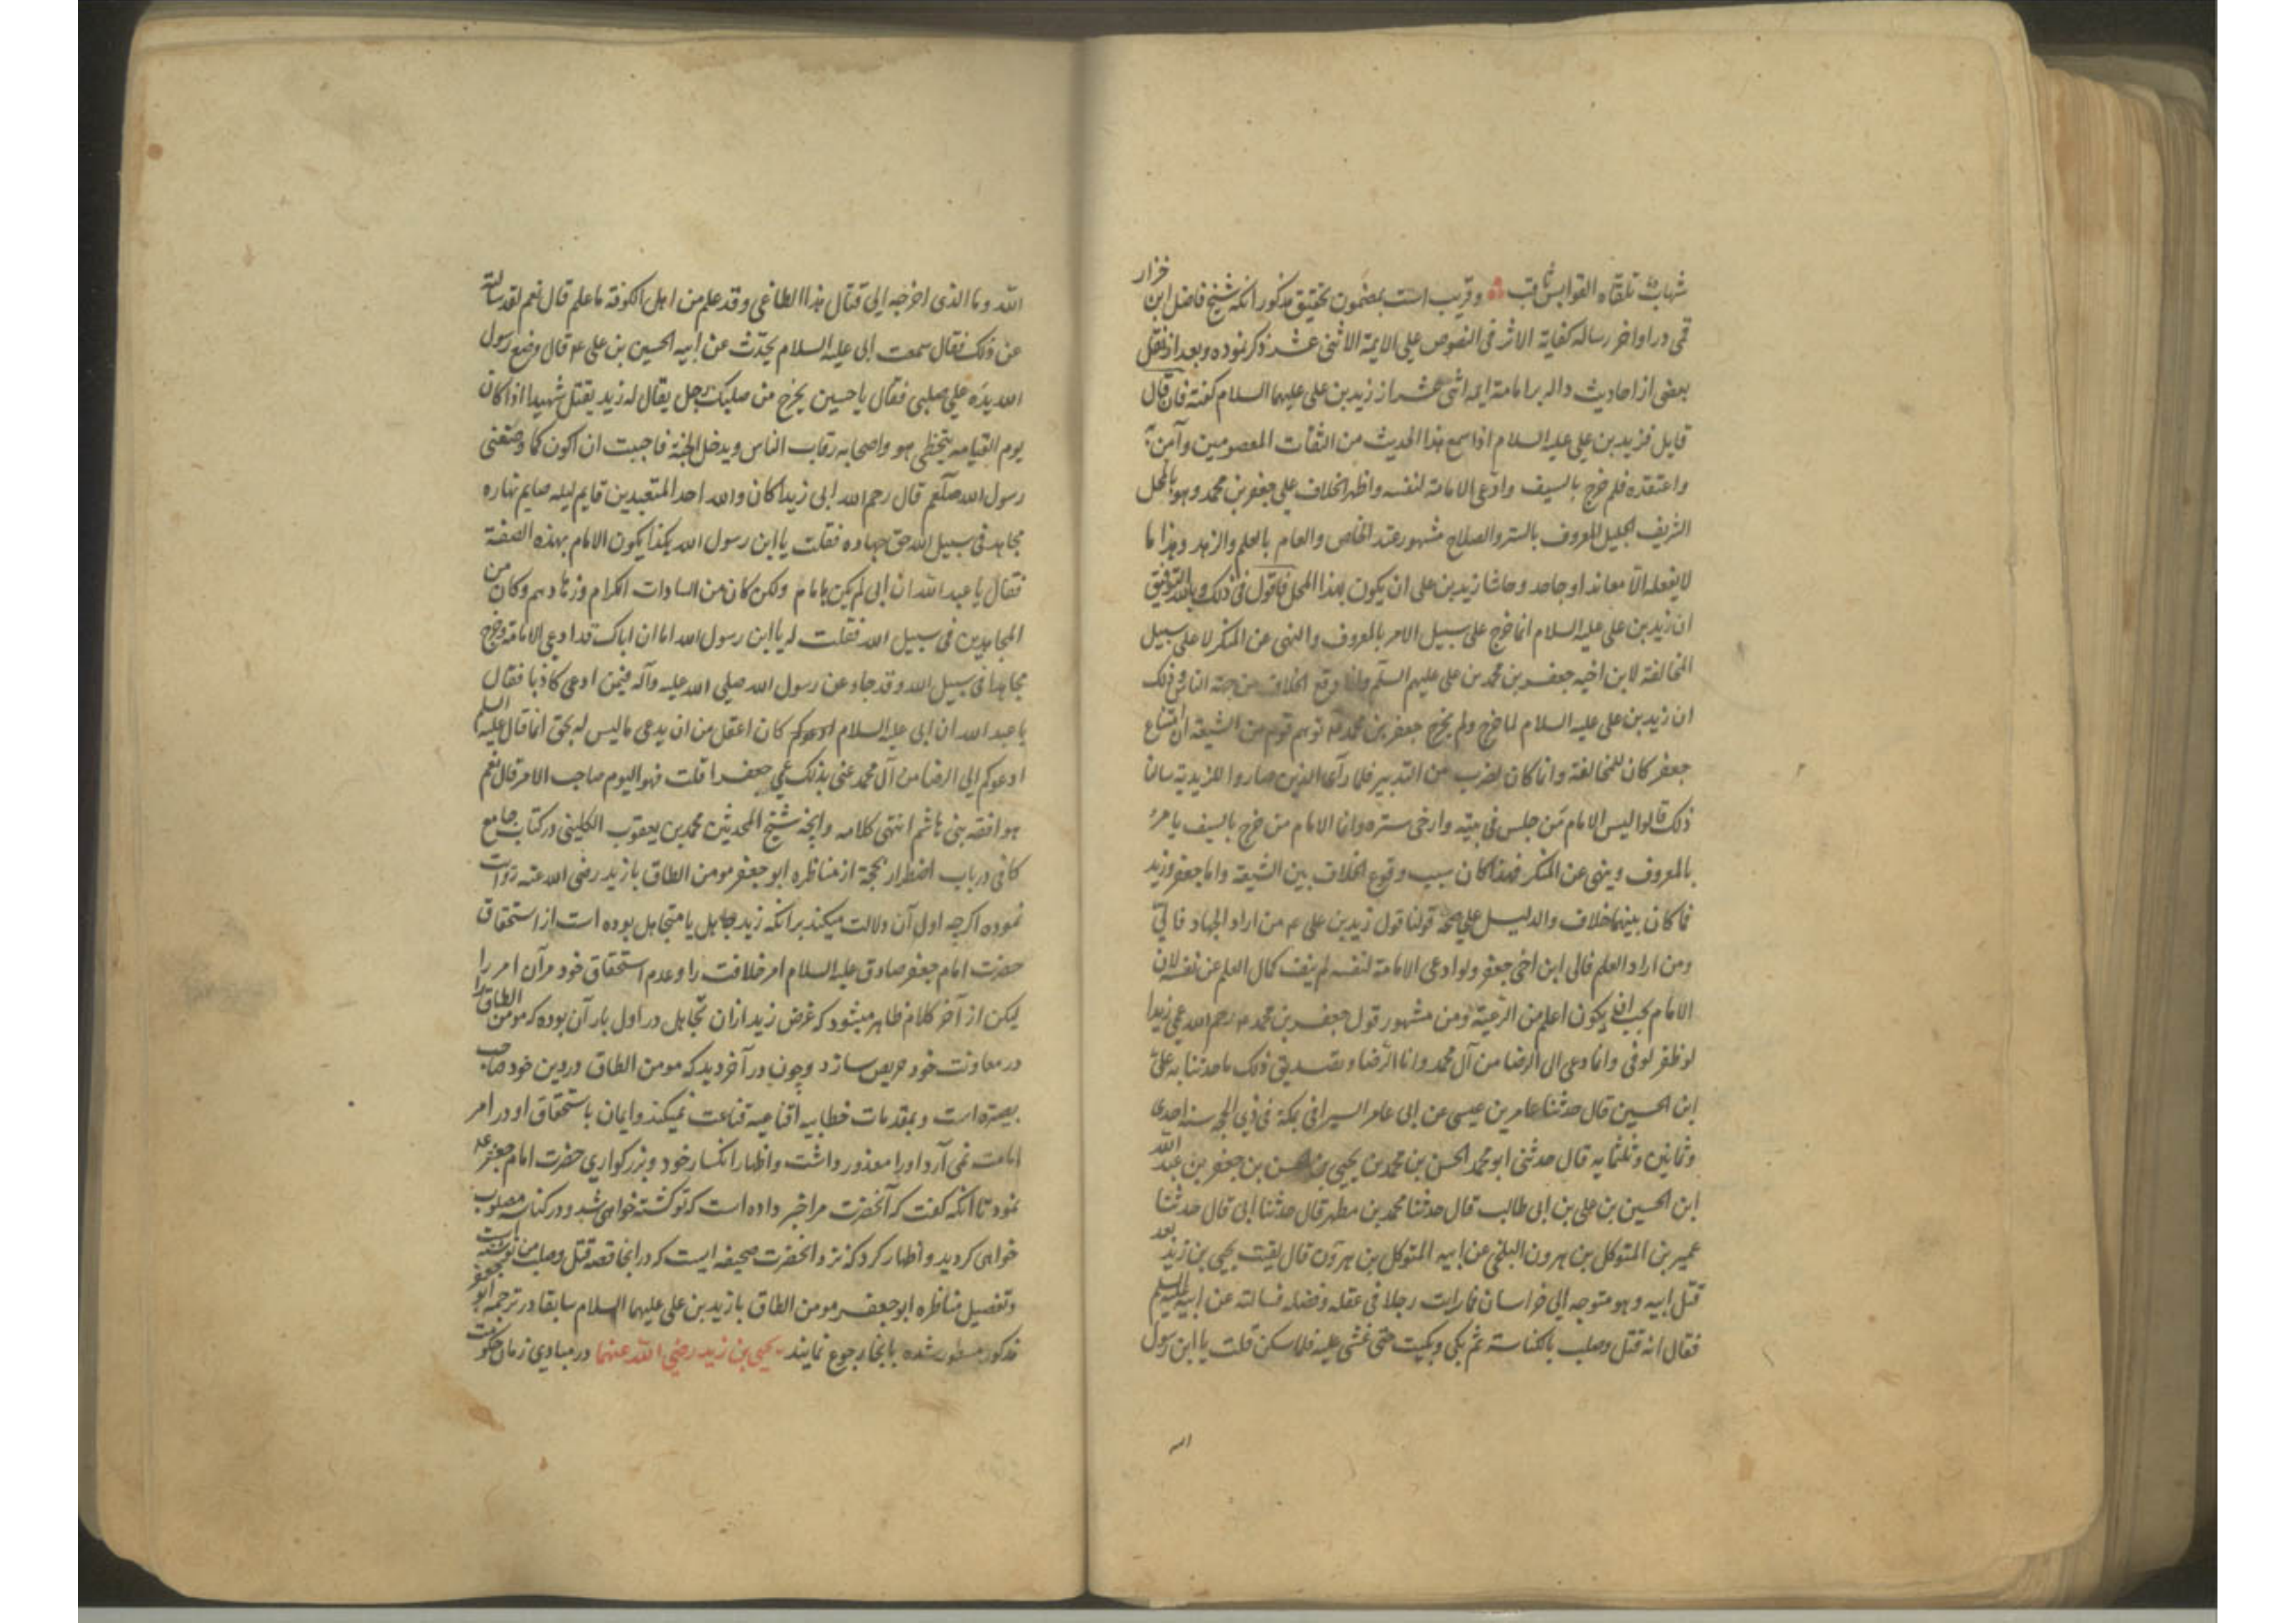 شهاب تلقاه القوابس ثاقب ۞ وقریب است بمضمون تحقیق مذکور آنکه شیخ فاضل ابن خزار
قمی در اواخر رساله کفایة الاثر فی النصوص علی الایمة الاثنی عشر ذکر نموده و بعد از نقل
بعضی از احادیث داله بر امامت ایمه اثنی عشر از زید بن علی علیهما السلام کفته فان قال
قایل فزید بن علی علیه السلام اذا سمع هذا الحدیث من الثقات المعصومین وآمن به
واعتقده فلم خرج بالسیف وادعی الامامة لنفسه واظهر الخلاف علی جعفر بن محمد وهو بالمحل
الشریف الجلیل المعروف بالستر والصلاح مشهور عند الخاص والعام بالعلم والزهد وهذا ما
لا یفعله الا معاند او جاحد وحاشا زید بن علی ان یکون بهذا المحل فاقول فی ذلک وبالله التوفیق
ان زید بن علی علیه السلام انما خرج علی سبیل الامر بالمعروف والنهی عن المنکر لا علی سبیل
المخالفة لابن اخیه جعفر بن محمد بن علی علیهم السلم وانما وقع الخلاف من جهة الناس وذلک
ان زید بن علی علیه السلام لما خرج ولم یخرج جعفر بن محمد ع توهم قوم من الشیعة ان امتناع
جعفر کان للمخالفة وانما کان لضرب من التدبیر فلما رآی الذین صاروا للزیدیة سالفا
ذلک قالوا لیس الامام من جلس فی بیته وارخی ستره وانما الامام من خرج بالسیف یامر
بالمعروف وینهی عن المنکر فهذا کان سبب وقوع الخلاف بین الشیعة واما جعفر وزید
فما کان بینهما خلاف والدلیل علی صحة قولنا قول زید بن علی ع من اراد الجهاد فالی
ومن اراد العلم فالی ابن اخی جعفر ولو ادعی الامامة لنفسه لم ینف کمال العلم عن نفسه لان
الامام یجب ان یکون اعلم من الرعیة ومن مشهور قول جعفر بن محمد ع رحم الله عمی زیدا
لو ظفر لوفی وانما دعی الی الرضا من آل محمد وانا الرضا وتصدیق ذلک ما حدثنا به علی
ابن الحسین قال حدثنا عامر بن عیسی عن ابی عامر السیرافی بمکة فی ذی الحجه سنه احدی
وثمانین وثلثمایه قال حدثنی ابو محمد الحسن بن محمد بن یحیی بن الحسن بن جعفر بن عبد الله
ابن الحسین بن علی بن ابی طالب قال حدثنا محمد بن مطهر قال حدثنا ابی قال حدثنا
عمیر بن المتوکل بن هرون البلخی عن ابیه المتوکل بن هرون قال لقیت یحیی بن زید بعد
قتل ابیه وهو متوجه الی خراسان فما رایت رجلا فی عقله وفضله فسالته عن ابیه علیه السلم
فقال انه قتل وصلب بالکناسة ثم بکی وبکیت حتی غشی علیه فلما سکن قلت یا ابن رسول
الله
الله وما الذی اخرجه الی قتال هذا الطاغی وقد علم من اهل الکوفة ما علم قال نعم لقد سالته
عن ذلک فقال سمعت ابی علیه السلام یحدث عن ابیه الحسین بن علی ع قال وضع رسول
الله یده علی صلبی فقال یا حسین یخرج من صلبک رجل یقال له زید یقتل شهیدا اذا کان
یوم القیامه یتخطی هو واصحابه رقاب الناس ویدخل الجنة فاحببت ان اکون کما وصفنی
رسول الله صلعم قال رحم الله ابی زیدا کان والله احد المتعبدین قایم لیله صایم نهاره
مجاهد فی سبیل الله حق جهاده فقلت یا ابن رسول الله هکذا یکون الامام بهذه الصفة
فقال یا عبد الله ان ابی لم یکن بامام ولکن کان من السادات الکرام وزهادهم وکان من
المجاهدین فی سبیل الله فقلت له یا ابن رسول الله اما ان اباک قد ادعی الامامة وخرج
مجاهدا فی سبیل الله وقد جاء عن رسول الله صلی الله علیه وآله فیمن ادعی کاذبا فقال
یا عبد الله ان ابی علیه السلام کان اعقل من ان یدعی ما لیس له بحق انما قال علیه السلم
ادعوکم الی الرضا من آل محمد عنی بذلک عمی جعفرا قلت فهو الیوم صاحب الامر قال نعم
هو افقه بنی هاشم انتهی کلامه وآنچه شیخ المحدثین محمد بن یعقوب الکلینی در کتاب جامع
کافی در باب اضطرار بحجة از مناظره ابو جعفر مومن الطاق با زید رضی الله عنه روایت
نموده اکرچه اول آن دلالت میکند بر آنکه زید جاهل یا متجاهل بوده است از استحقاق
حضرت امام جعفر صادق علیه السلام امر خلافت را وعدم استحقاق خود مر آن امر را
لیکن از آخر کلام ظاهر میشود که غرض زید از ان تجاهل در اول بار آن بوده که مومن الطاق را
در معاونت خود حریص سازد وچون در آخر دید که مومن الطاق در دین خود صاحب
بصیرة است وبمقدمات خطابیه اقناعیه قناعت نمیکند وایمان باستحقاق او در امر
امامت نمی آرد او را معذور داشت واظهار انکسار خود وبزرکواری حضرت امام جعفر ع
نمود تا آنکه کفت که آنحضرت مرا خبر داده است که تو کشته خواهی شد ودر کناسه مصلوب
خواهی کردید واظهار کرد که نزد آنحضرت صحیفه ایست که در آنجا قصه قتل وصلب من نوشته است
وتفصیل مناظره ابو جعفر مومن الطاق با زید بن علی علیهما السلام سابقا در ترجمه ابو جعفر
مذکور مسطور شده بآنجا رجوع نمایند یحیی بن زید رضی الله عنهما در مبادی زمان حکومت